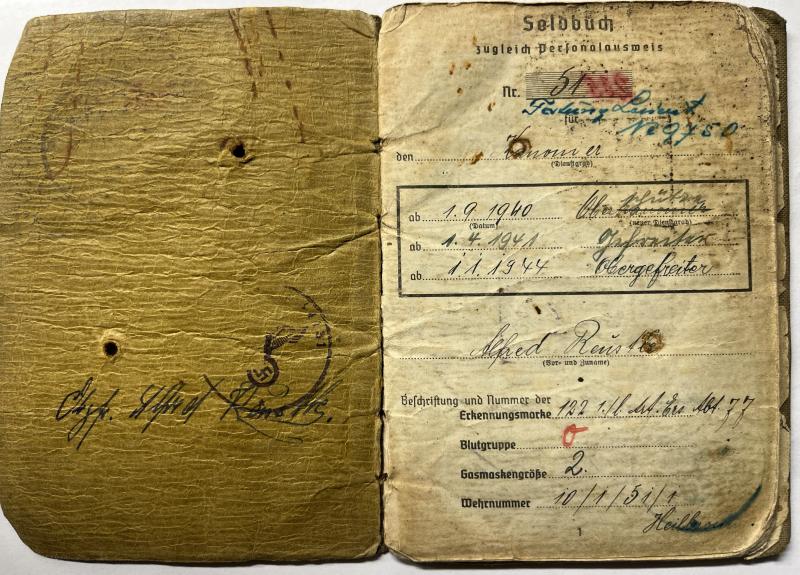 Obgfr. Alfred
Soldbuch
zugleich Personalausweis
Nr. 51
Festung Lorient
No 9750
für
den Kanonier
(Dienstgrad)
ab 1.9.1940 Oberschütze
(Datum) (neuer Dienstgrad)
ab 1.4.1941 Gefreiter
ab 1.1.1944 Obergefreiter
Alfred
(Vor- und Zuname)
Beschriftung und Nummer der
Erkennungsmarke 122 1./l. Art. Ers. Abt. 77
Blutgruppe O
Gasmaskengröße 2.
Wehrnummer 10/1/51/1
Heilbronn
1